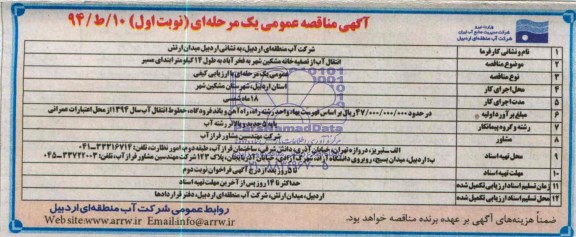 آگهی مناقصه عمومی یک مرحله ای (نوبت اول) ۱۰/ط/۹۴
وزارت نیرو
شرکت مدیریت منابع آب ایران
شرکت آب منطقه‌ای اردبیل
۱ نام و نشانی کارفرما شرکت آب منطقه‌ای اردبیل، به نشانی اردبیل میدان ارتش
۲ موضوع مناقصه انتقال آب از تصفیه خانه مشگین شهر به فخرآباد به طول ۱۴ کیلومتر ابتدای مسیر
۳ نوع مناقصه عمومی یک مرحله‌ای با ارزیابی کیفی
۴ محل اجرای کار استان اردبیل، شهرستان مشگین شهر
۵ مدت اجرای کار ۱۸ ماه شمسی
۶ مبلغ برآورد اولیه در حدود ۴۷/۰۰۰/۰۰۰/۰۰۰ ریال بر اساس فهرست بهاء واحد رشته راه، راه آهن و باند فرودگاه، خطوط انتقال آب سال ۱۳۹۴ از محل اعتبارات عمرانی
۷ رشته و گروه پیمانکار پایه ۵ جدید و بالاتر رشته آب
۸ مشاور شرکت مهندسین مشاور فراز آب
۹ محل تهیه اسناد الف ـ تبریز، دروازه تهران، خیابان آذری، دانش شرقی، ساختمان فراز آب، طبقه دوم، امور نظارت، تلفن: ۳۳۳۱۶۷۱۴ـ۰۴۱
ب: اردبیل، میدان بسیج، روبروی دانشگاه آزاد، شهرک آزادی، خیابان آذربایجان، پلاک ۱۲۳ شرکت مهندسین مشاور فراز آب، تلفن: ۳۳۷۲۲۰۰۳ـ۰۴۵
۱۰ مهلت تهیه اسناد تا ۵ روز بعد از درج آگهی فراخوان نوبت دوم
۱۱ زمان تسلیم اسناد ارزیابی تکمیل شده حداکثر تا ۱۴ روز پس از آخرین مهلت تهیه اسناد
۱۲ محل تسلیم اسناد ارزیابی تکمیل شده اردبیل، میدان ارتش، شرکت آب منطقه‌ای اردبیل، دفتر قراردادها
ضمناً هزینه‌های آگهی بر عهده برنده مناقصه خواهد بود.
روابط عمومی شرکت آب منطقه‌ای اردبیل
Web site:www.arrw.ir Email:info@arrw.ir
ParsNamadData